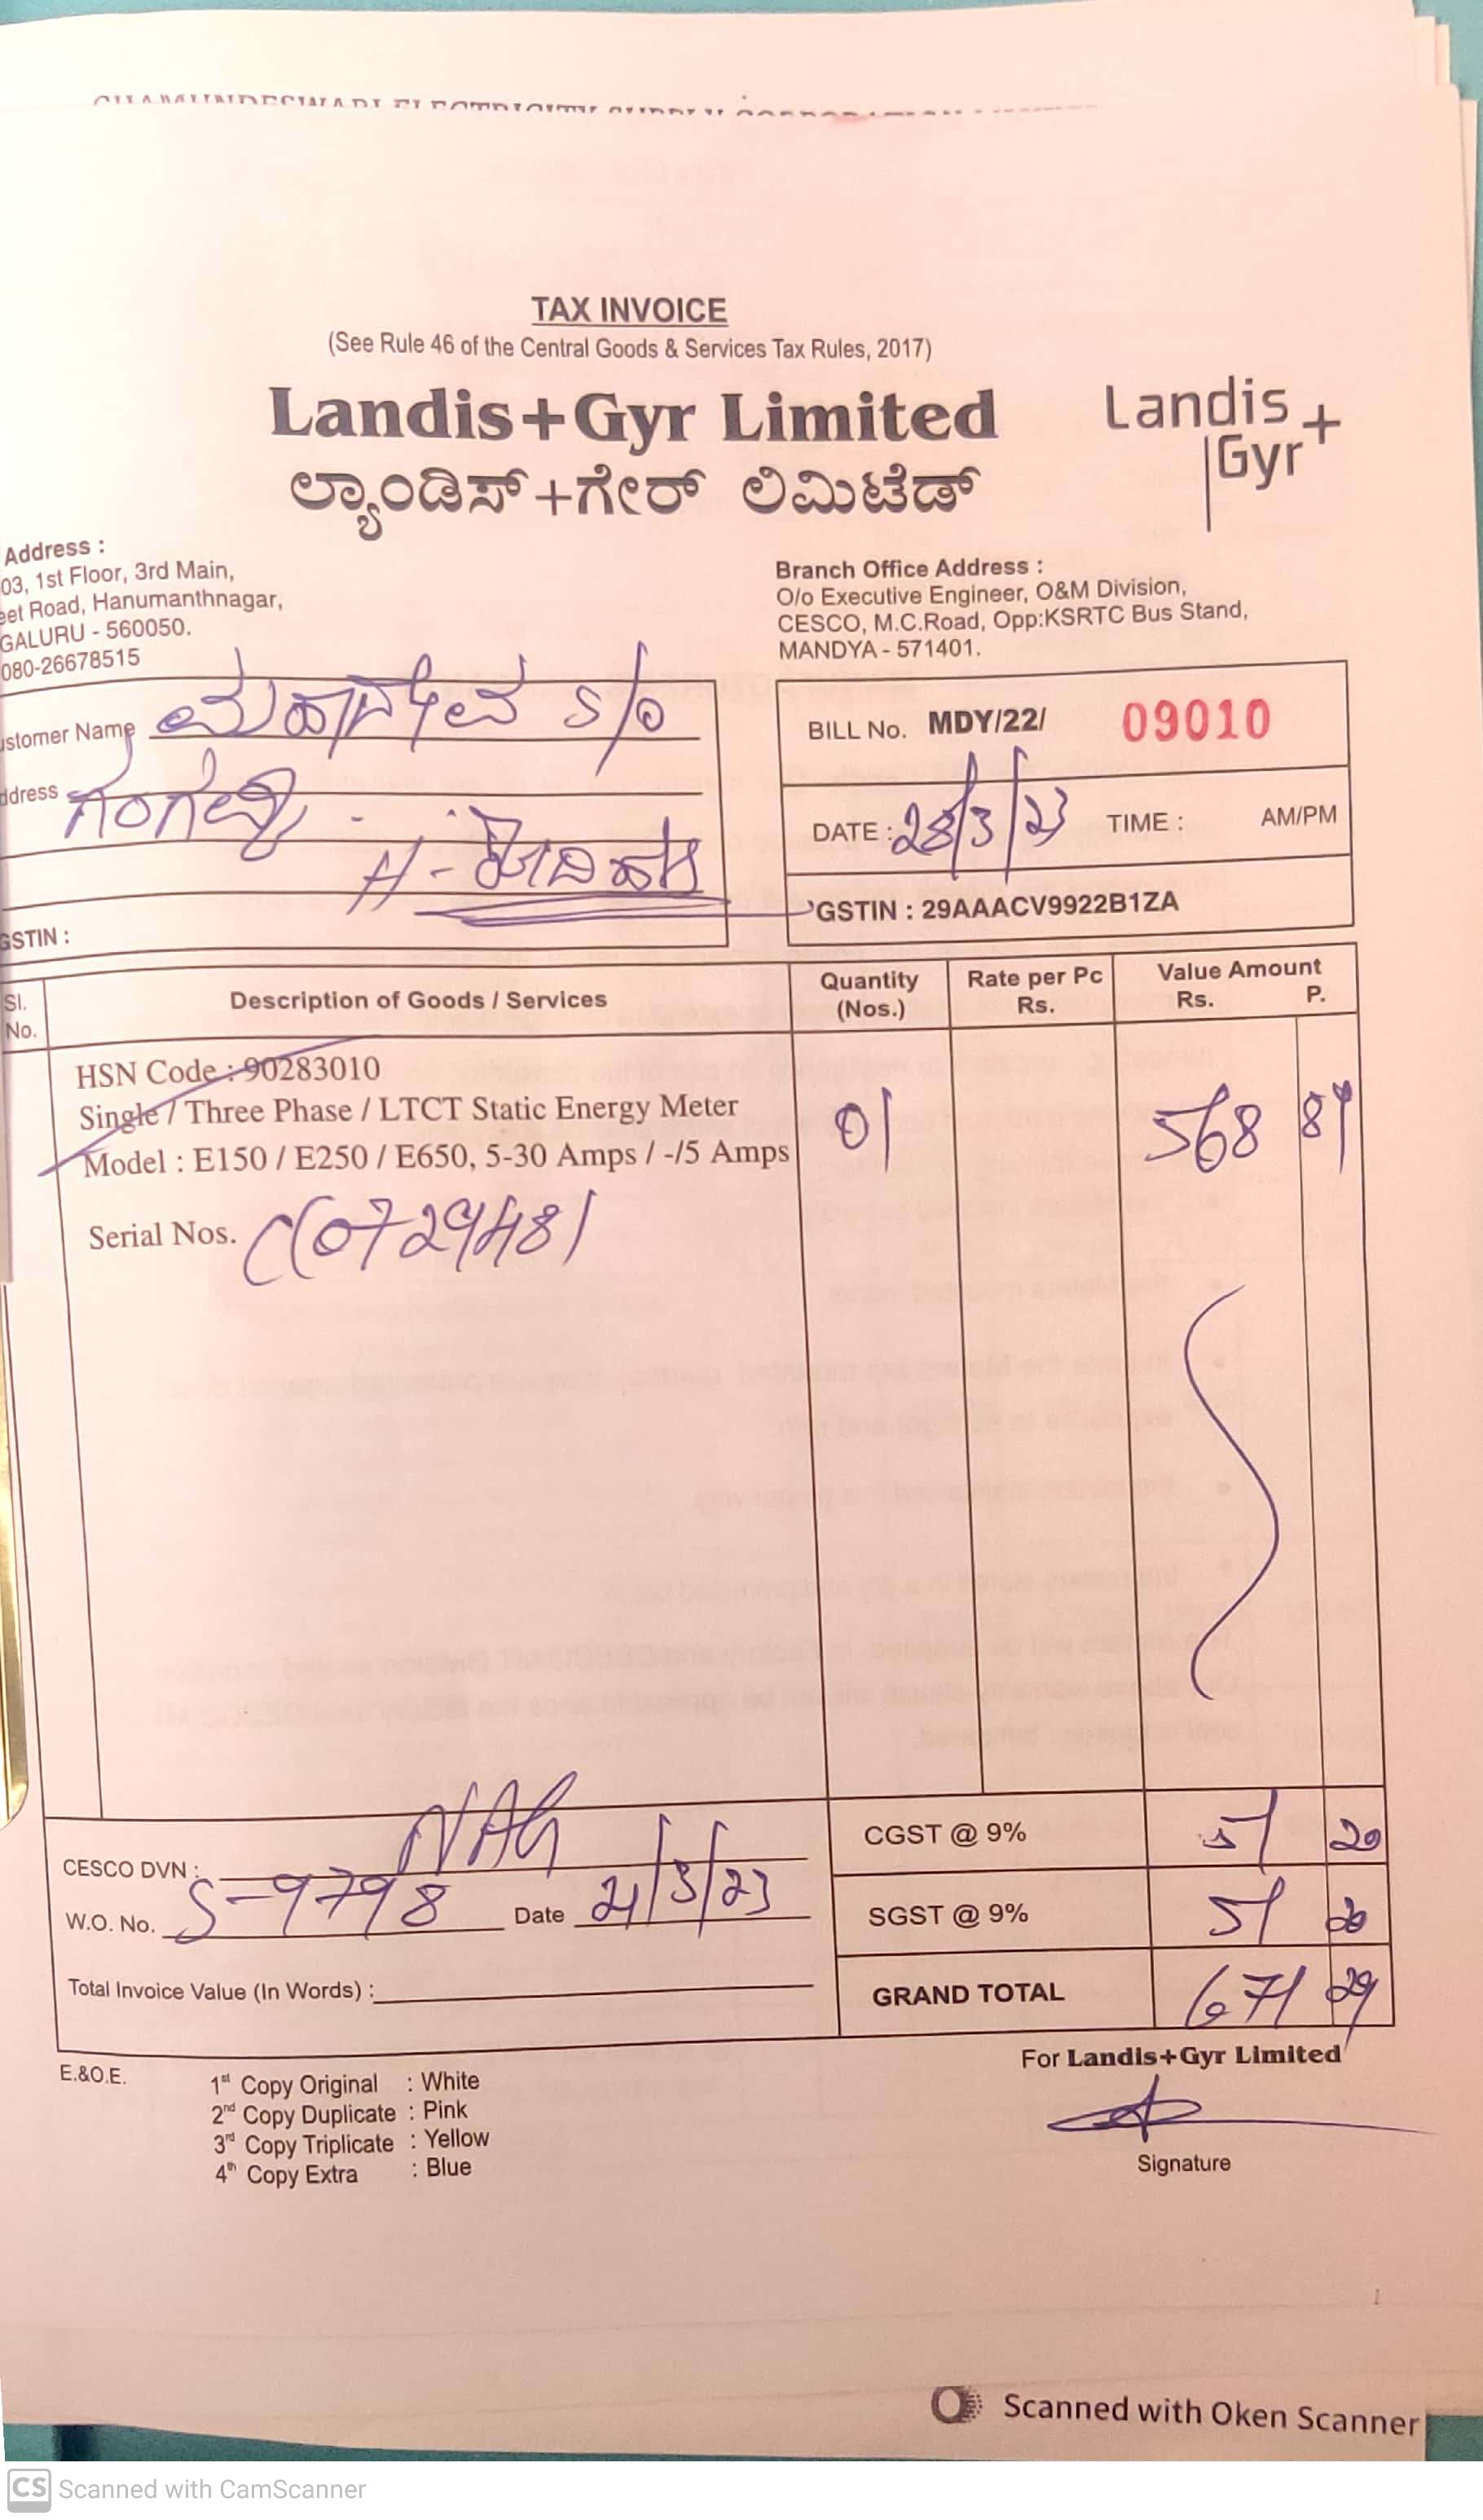 CHAMUNDESWARI ELECTRICITY SUPPLY CORPORATION
TAX INVOICE
(See Rule 46 of the Central Goods & Services Tax Rules, 2017)
Landis+Gyr Limited
ಲ್ಯಾಂಡಿಸ್+ಗೇರ್ ಲಿಮಿಟೆಡ್
Landis
Gyr+
Address :
03, 1st Floor, 3rd Main,
eet Road, Hanumanthnagar,
GALURU - 560050.
080-26678515
Branch Office Address :
O/o Executive Engineer, O&M Division,
CESCO, M.C.Road, Opp:KSRTC Bus Stand,
MANDYA - 571401.
ustomer Name ಮಹಾದೇವ S/o
ddress
H -
GSTIN :
BILL No. MDY/22/ 09010
DATE : 28/3/23 TIME : AM/PM
GSTIN : 29AAACV9922B1ZA
Sl. No. Description of Goods / Services Quantity (Nos.) Rate per Pc Rs. Value Amount Rs. P.
HSN Code : 90283010
Single / Three Phase / LTCT Static Energy Meter 01 568 84
Model : E150 / E250 / E650, 5-30 Amps / -/5 Amps
Serial Nos. CC0729481
CESCO DVN : NAG
W.O. No. S-9798 Date 21/3/23
Total Invoice Value (In Words) :
CGST @ 9% 51 20
SGST @ 9% 51 20
GRAND TOTAL 671 29
E.&O.E.
1st Copy Original : White
2nd Copy Duplicate : Pink
3rd Copy Triplicate : Yellow
4th Copy Extra : Blue
For Landis+Gyr Limited
Signature
Scanned with Oken Scanner
CS Scanned with CamScanner